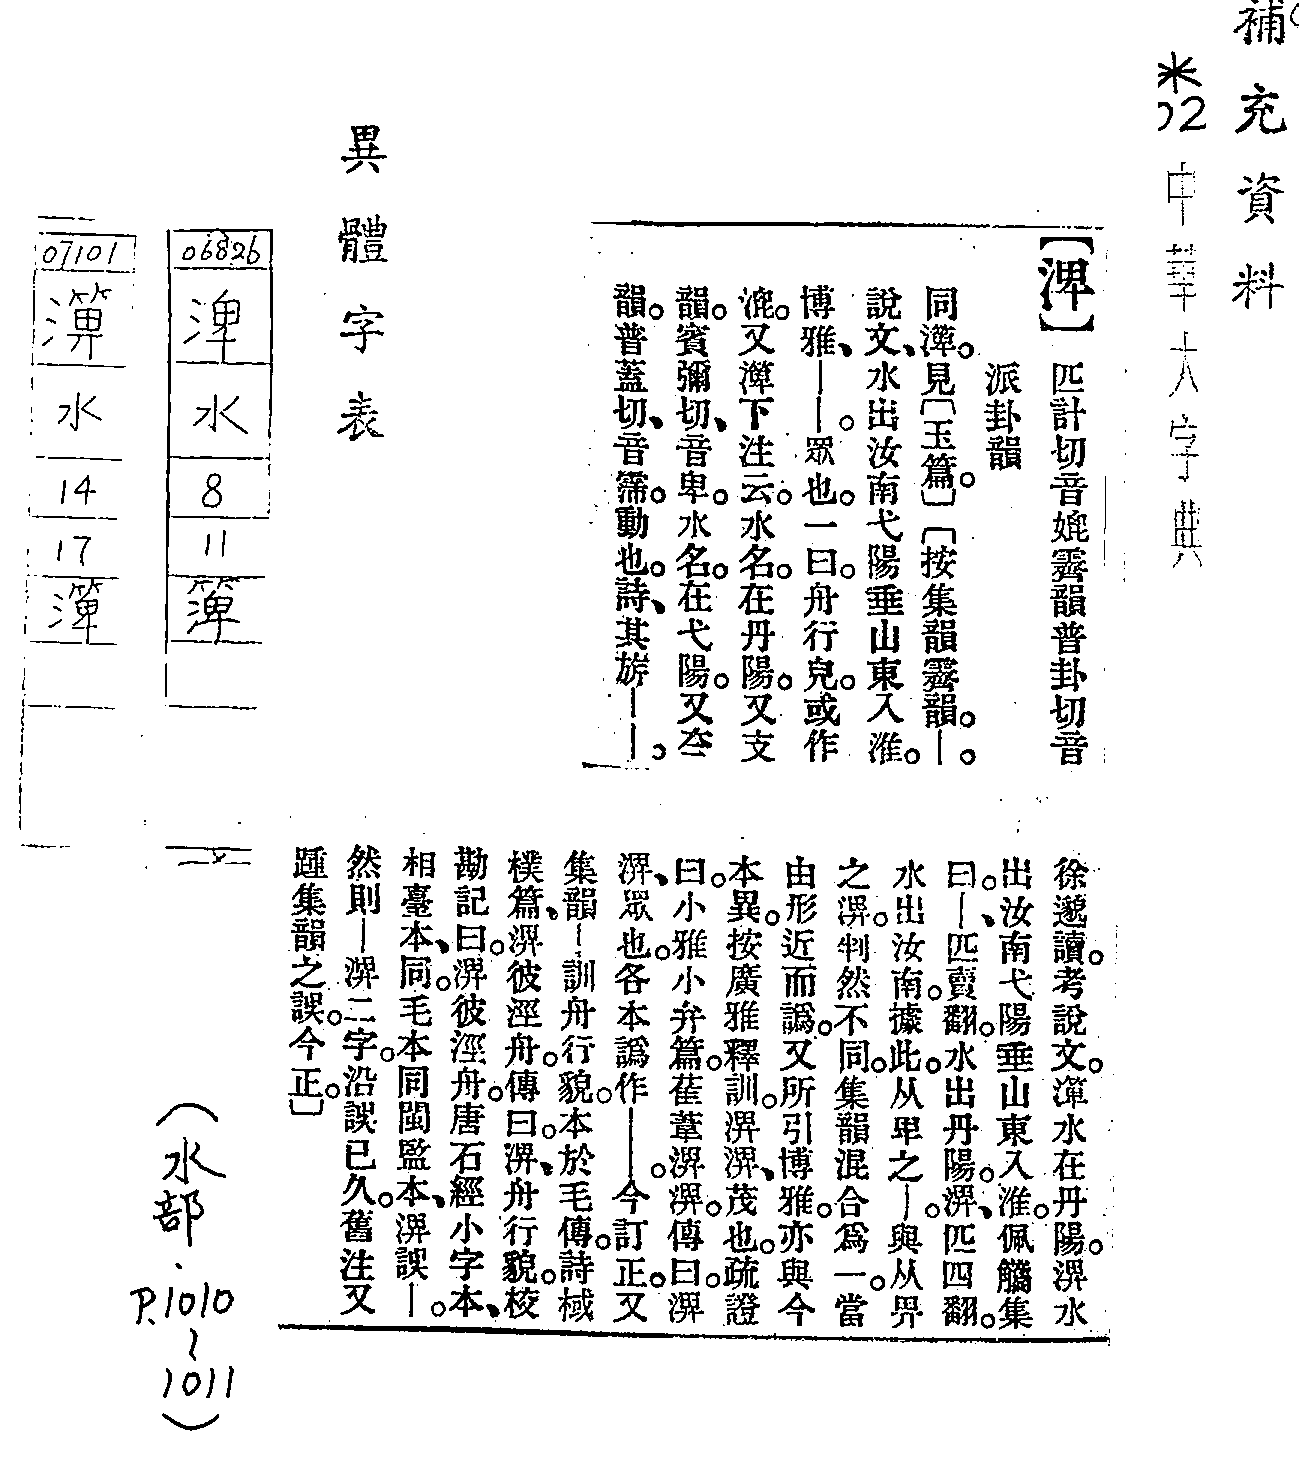 補充資料
※
02
中華大字典
【渒】
匹計切音媲霽韻普卦切音
派卦韻
同潷。見〔玉篇。〕〔按集韻霽韻。—。
說文、水出汝南弋陽垂山東入淮。
博雅、——。眾也。一曰。舟行皃。或作
淠。又潷下注云。水名。在丹陽。又支
韻。賓彌切、音卑。水名。在弋陽。又泰
韻。普蓋切、音霈。動也。詩、其旂——。
徐邈讀。考說文。渒水在丹陽。淠水
出汝南弋陽垂山東入淮。佩觿集
曰。—、匹賣翻。水出丹陽。淠、匹四翻。
水出汝南。據此。从卑之—。與从畀
之淠。判然不同。集韻混合為一。當
由形近而譌。又所引博雅。亦與今
本異。按廣雅釋訓。淠淠、茂也。疏證
曰。小雅小弁篇。萑葦淠淠。傳曰。淠
淠、眾也。各本譌作——。今訂正。又
集韻—訓舟行貌。本於毛傳。詩棫
樸篇、淠彼涇舟。傳曰。淠、舟行貌。校
勘記曰。淠彼涇舟。唐石經小字本、
相臺本、同。毛本同閩監本、淠誤—。
然則—淠二字。沿誤已久。舊注又
踵集韻之誤。今正。〕
異體字表
06826
渒
水
8
11
07101
水
14
17
（水部．P.1010~1011）